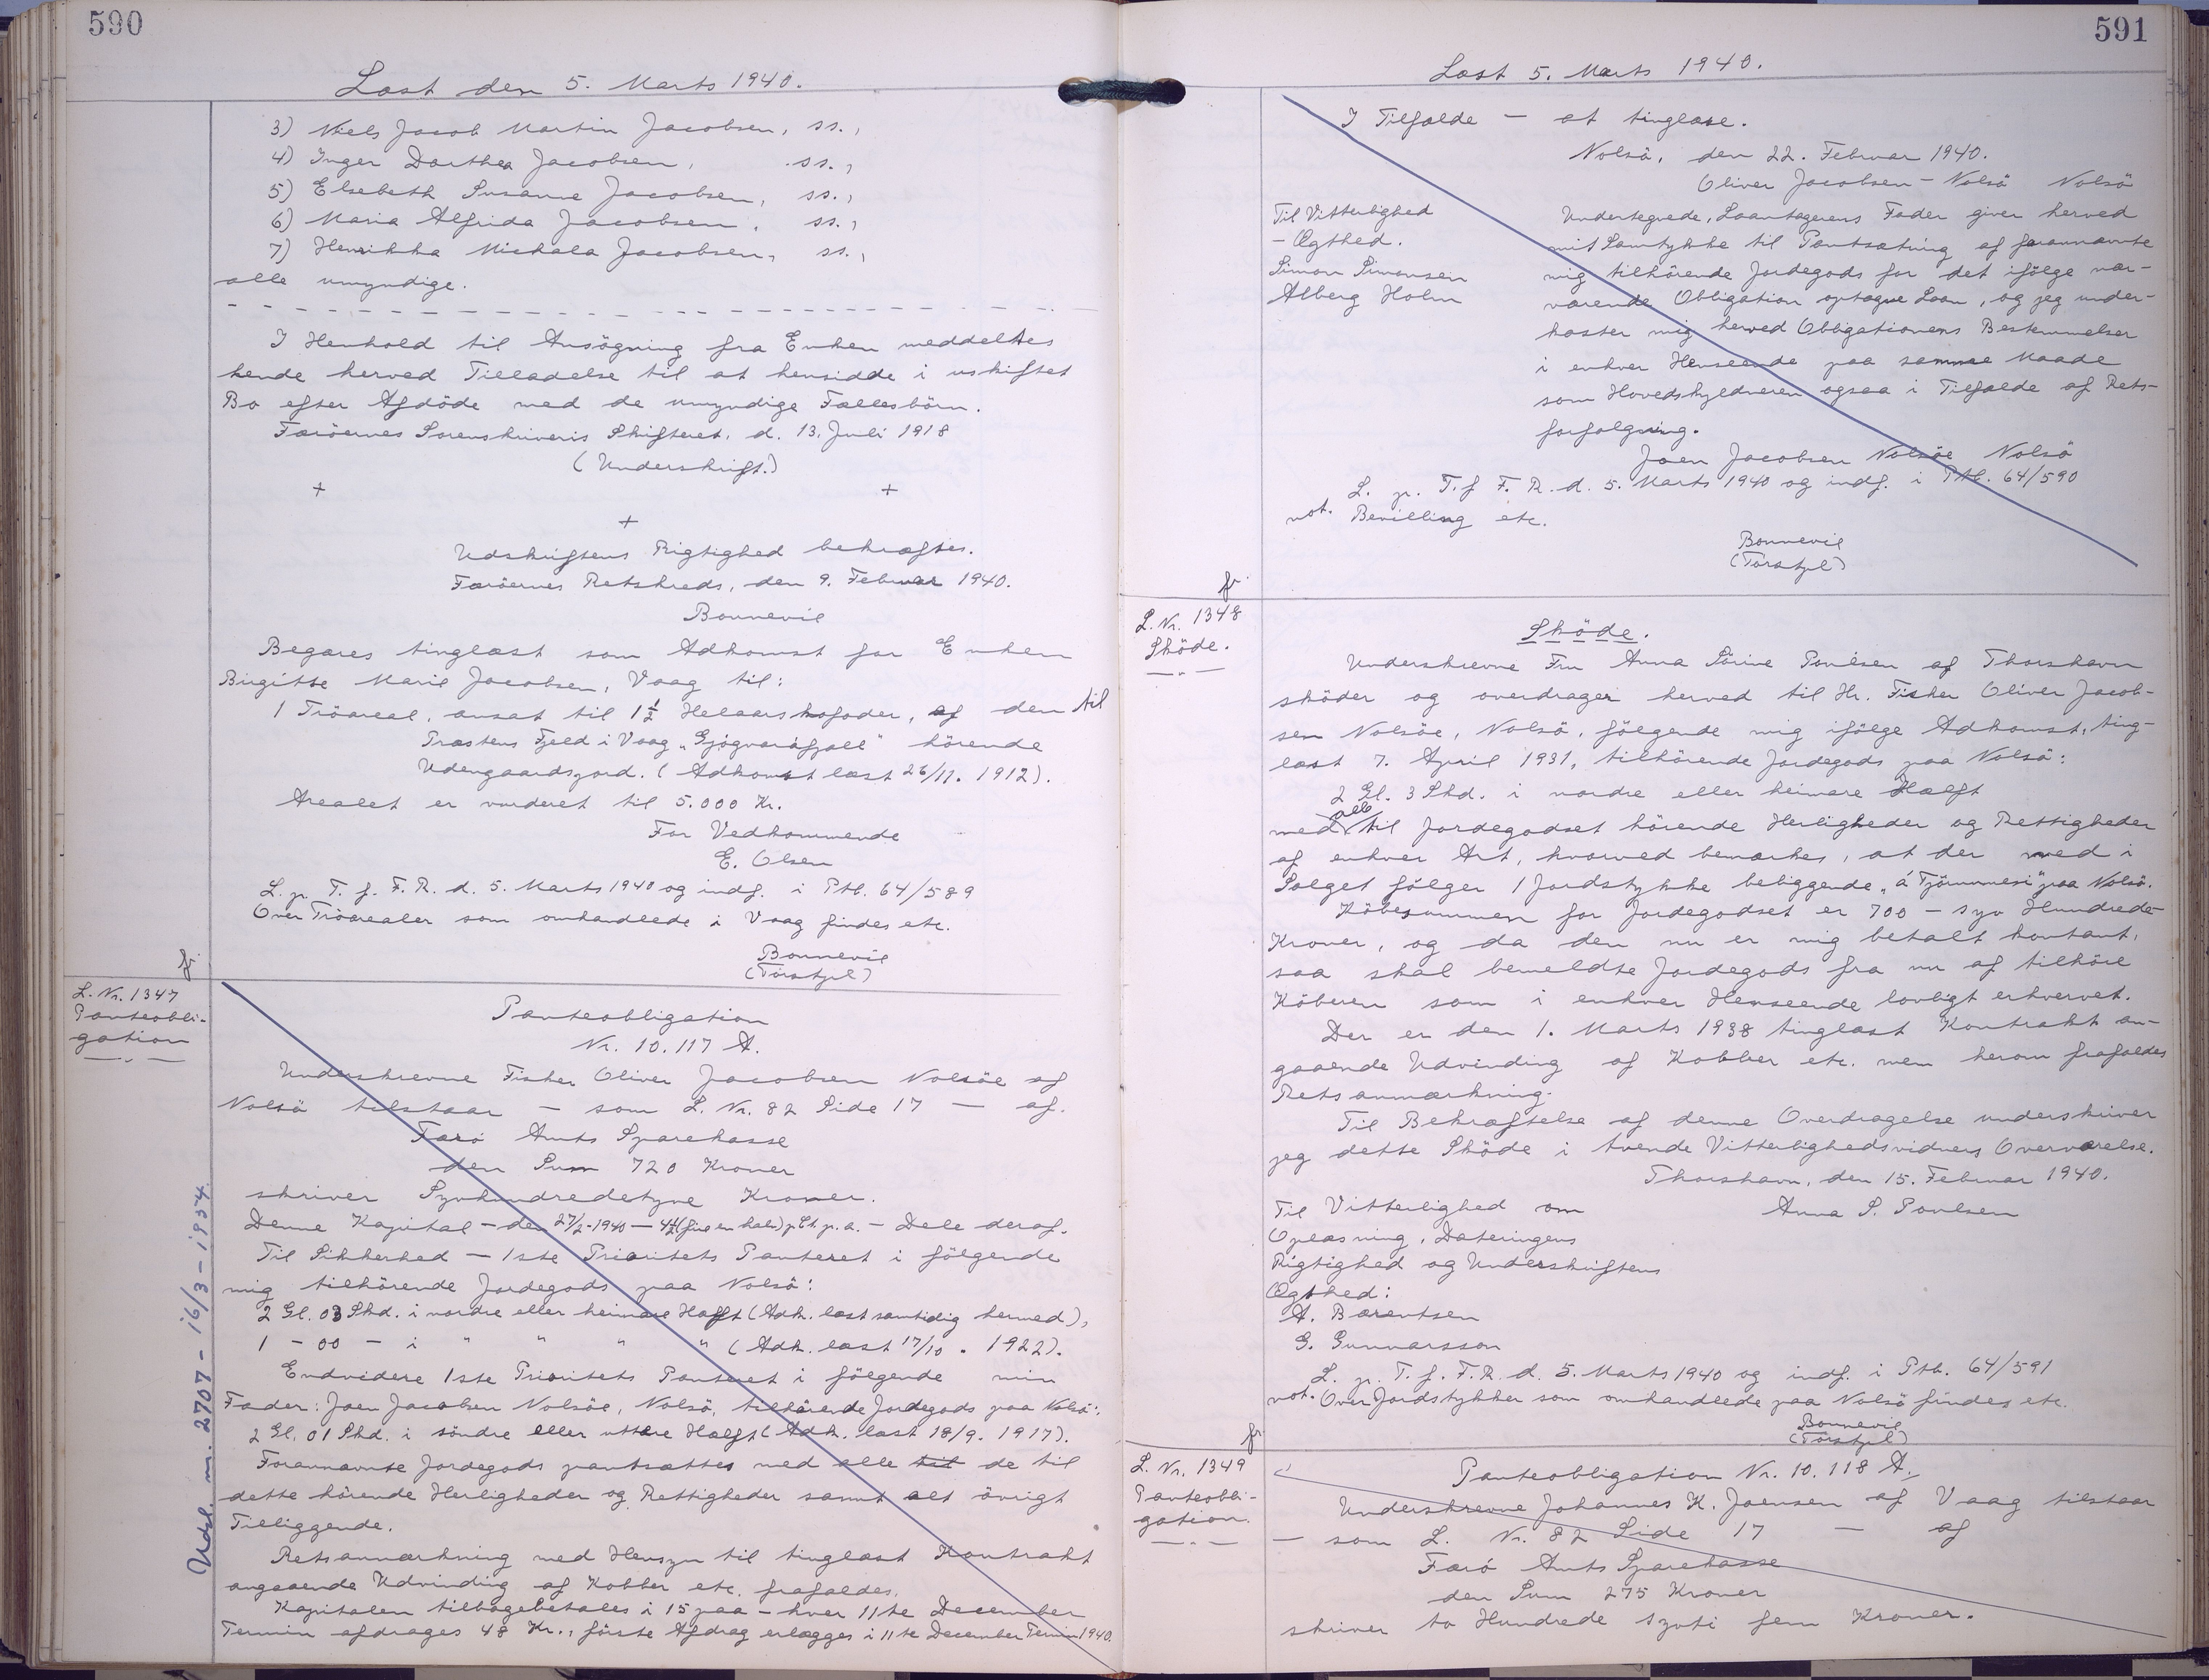 590
Læst den 5. Marts 1940.
3) Niels Jacob Martin Jacobsen, ss.,
4) Inger Dorthea Jacobsen, ss.,
5) Elsebeth Susanne Jacobsen, ss.,
6) Maria Alfrida Jacobsen, ss.,
7) Henrikka Michala Jacobsen, ss.,
alle umyndige.
I Henhold til Ansögning fra Enken meddeltes
hende herved Tilladelse til at hensidde i uskiftet
Bo efter Afdöde med de umyndige Fællesbörn.
Færöernes Sorenskriveris Skifteret, d. 13. Juli 1918
(Underskrift.)
+ +
+
Udskriftens Rigtighed bekræftes.
Færöernes Retskreds, den 9. Februar 1940.
Bonnevie
Begæres tinglæst som Adkomst for Enken
Birgitte Marie Jacobsen, Vaag til:
1 Tröareal, ansat til 1½ Helaarskofoder, af den til
Præstens Fjeld i Vaag "Gjógvaráfjall" hörende
Udengaardsjord. (Adkomst læst 26/11. 1912).
Arealet er vurderet til 5.000 Kr.
For Vedkommende
E. Olsen
L. p. T. f. F. R. d. 5. Marts 1940 og indf. i Ptb. 64/589
Over Tröarealer som omhandlede i Vaag findes etc.
Bonnevie
(Torstjl)
fr.
L. Nr. 1347
Panteobli-
gation
Panteobligation
Nr. 10.117 A.
Underskrevne Fisker Oliver Jacobsen Nolsöe af
Nolsö tilstaar — som L. Nr. 82 Side 17 — af.
Færö Amts Sparekasse
den Sum 720 Kroner
skriver Syvhundredetyve Kroner.
Denne Kapital — den 27/2-1940 — 4½ (fire en halv) p Ct. p. a. — Dele deraf.
Til Sikkerhed — 1ste Prioritets Panteret i fölgende
mig tilhörende Jordegods paa Nolsö:
2 Gl. 03 Skd. i nordre eller heimare Halft (Adk. læst samtidig hermed),
1 - 00 - i " " " " (Adk. læst 17/10. 1922).
Endvidere 1ste Prioritets Panteret i fölgende min
Fader: Joen Jacobsen Nolsöe, Nolsö, tilhörende Jordegods paa Nolsö:
2 Gl. 01 Skd. i söndre eller uttare Hælft (Adk. læst 18/9. 1917).
Forannævnte Jordegods pantsættes med alle til de til
dette hörende Herligheder og Rettigheder samt alt övrigt
Tilliggende.
Retsanmærkning med Hensyn til tinglæst Kontrakt
angaaende Udvinding af Kobber etc. frafaldes.
Kapitalen tilbagebetales i 15 paa — hver 11te December
Termin afdrages 48 Kr., förste Afdrag erlægges i 11te December Termin 1940.
Udsl. m. 2707 - 16/3 - 1954.
591
Læst 5. Marts 1940.
I Tilfælde — at tinglæse.
Nolsö, den 22. Februar 1940.
Oliver Jacobsen - Nolsö Nolsö
Til Vitterlighed
- Ægthed.
Simon Simonsen
Alberg Holm
Undertegnede, Laantagerens Fader giver herved
mit Samtykke til Pantsætning af forannævnte
mig tilhörende Jordegods for det ifölge nær-
værende Obligation optagne Laan, og jeg under-
kaster mig herved Obligationens Bestemmelser
i enhver Henseende paa samme Maade
som Hovedskyldneren ogsaa i Tilfælde af Rets-
forfölgning.
Joen Jacobsen Nolsöe Nolsö
L. p. T. f F. R. d. 5. Marts 1940 og indf. i Ptb. 64/590
not. Bevilling etc.
Bonnevie
(Torstjl)
fr.
L. Nr. 1348
Sköde.
Sköde.
Underskrevne Fru Anna Sörine Poulsen af Thorshavn
sköder og overdrager herved til Hr. Fisker Oliver Jacob-
sen Nolsöe, Nolsö, fölgende mig ifölge Adkomst, ting-
læst 7. April 1931, tilhörende Jordegods paa Nolsö:
2 Gl. 3 Skd. i nordre eller heimare Hælft
med alle til Jordegodset hörende Herligheder og Rettigheder
af enhver Art, hvorved bemærkes, at der med i
Salget fölger 1 Jordstykke beliggende "á Tjörnunesi" paa Nolsö.
Köbesummen for Jordegodset er 700 - syv Hundrede
Kroner, og da den nu er mig betalt kontant,
saa skal bemeldte Jordegods fra nu af tilhöre
Köberen som i enhver Henseende lovligt erhvervet.
Der er den 1. Marts 1938 tinglæst Kontrakt an-
gaaende Udvinding af Kobber etc. men herom frafaldes
Retsanmærkning.
Til Bekræftelse af denne Overdragelse underskriver
jeg dette Sköde i tvende Vitterlighedsvidners Overværelse.
Thorshavn, den 15. Februar 1940.
Til Vitterlighed om
Oplæsning, Dateringens
Rigtighed og Underskriftens
Ægthed:
A. Bærentsen
G. Gunnarsson
Anna S. Poulsen
L. p. T. f. F. R. d. 5. Marts 1940 og indf. i Ptb. 64/591
not. Over Jordstykker som omhandlede paa Nolsö findes etc.
Bonnevie
(Torstjl)
fr.
L. Nr. 1349
Panteobli-
gation.
Panteobligation Nr. 10.118 A.
Underskrevne Johannes K. Joensen af Vaag tilstaar
— som L. Nr. 82 Side 17 — af
Færö Amts Sparekasse
den Sum 275 Kroner
skriver to Hundrede syvti fem Kroner.